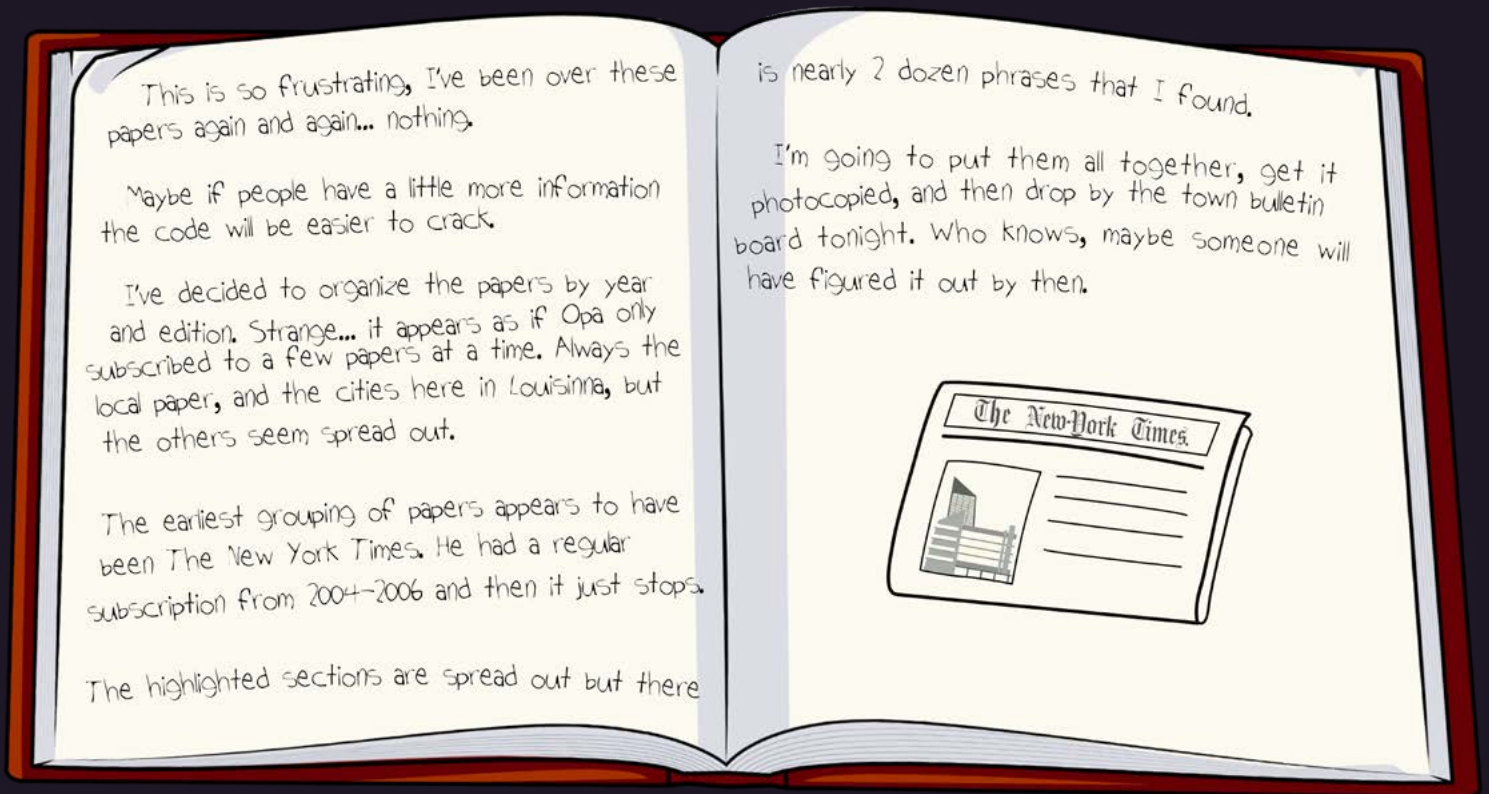 This is so frustrating, I've been over these
papers again and again... nothing.
Maybe if people have a little more information
the code will be easier to crack.
I've decided to organize the papers by year
and edition. Strange... it appears as if Opa only
subscribed to a few papers at a time. Always the
local paper, and the cities here in Louisinna, but
the others seem spread out.
The earliest grouping of papers appears to have
been The New York Times. He had a regular
subscription from 2004-2006 and then it just stops.
The highlighted sections are spread out but there
is nearly 2 dozen phrases that I found.
I'm going to put them all together, get it
photocopied, and then drop by the town bulletin
board tonight. Who knows, maybe someone will
have figured it out by then.
The New-York Times.